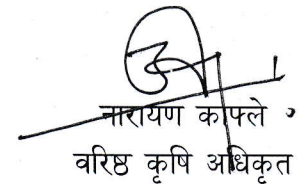 नारायण काफ्ले
वरिष्ठ कृषि अधिकृत